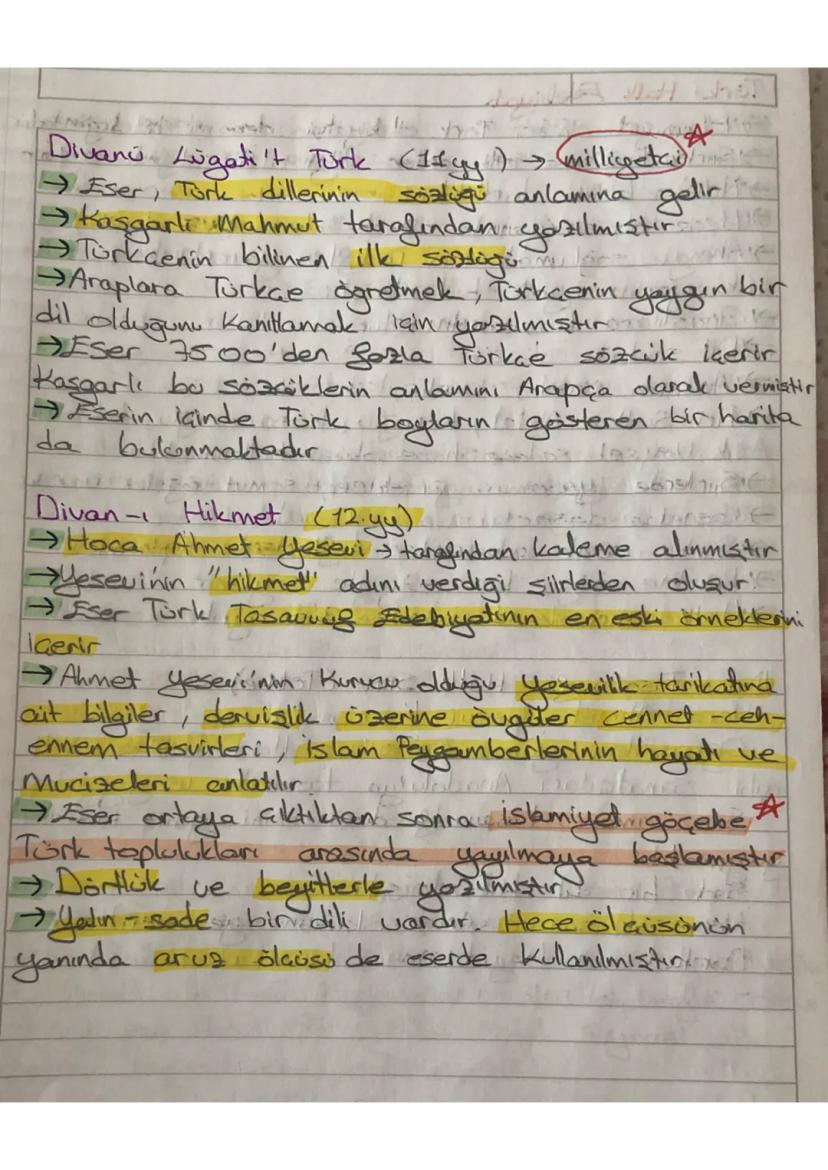 Divanü Lügati't Türk (11 yy) → milliyetçi
→ Eser, Türk dillerinin sözlüğü anlamına gelir
→ Kaşgarlı Mahmut tarafından yazılmıştır
→ Türkçenin bilinen ilk sözlüğü
→ Araplara Türkçe öğretmek, Türkçenin yaygın bir
dil olduğunu kanıtlamak için yazılmıştır
→ Eser 7500'den fazla Türkçe sözcük içerir
Kaşgarlı bu sözcüklerin anlamını Arapça olarak vermiştir
→ Eserin içinde Türk boyların gösteren bir harita
da bulunmaktadır
Divan-ı Hikmet (12.yy)
→ Hoca Ahmet Yesevi → tarafından kaleme alınmıştır
→ Yesevi'nin "hikmet" adını verdiği şiirlerden oluşur
→ Eser Türk Tasavvuf Edebiyatının en eski örneklerini
içerir
→ Ahmet Yesevi'nin kurucu olduğu Yesevilik tarikatına
ait bilgiler, dervişlik üzerine övgüler cennet-ceh-
ennem tasvirleri, İslam Peygamberlerinin hayatı ve
Mucizeleri anlatılır
→ Eser ortaya çıktıktan sonra islamiyet göçebe
Türk toplulukları arasında yayılmaya başlamıştır
→ Dörtlük ve beyitlerle yazılmıştır
→ Yalın-sade bir dili vardır. Hece ölçüsünün
yanında aruz ölçüsü de eserde kullanılmıştır.